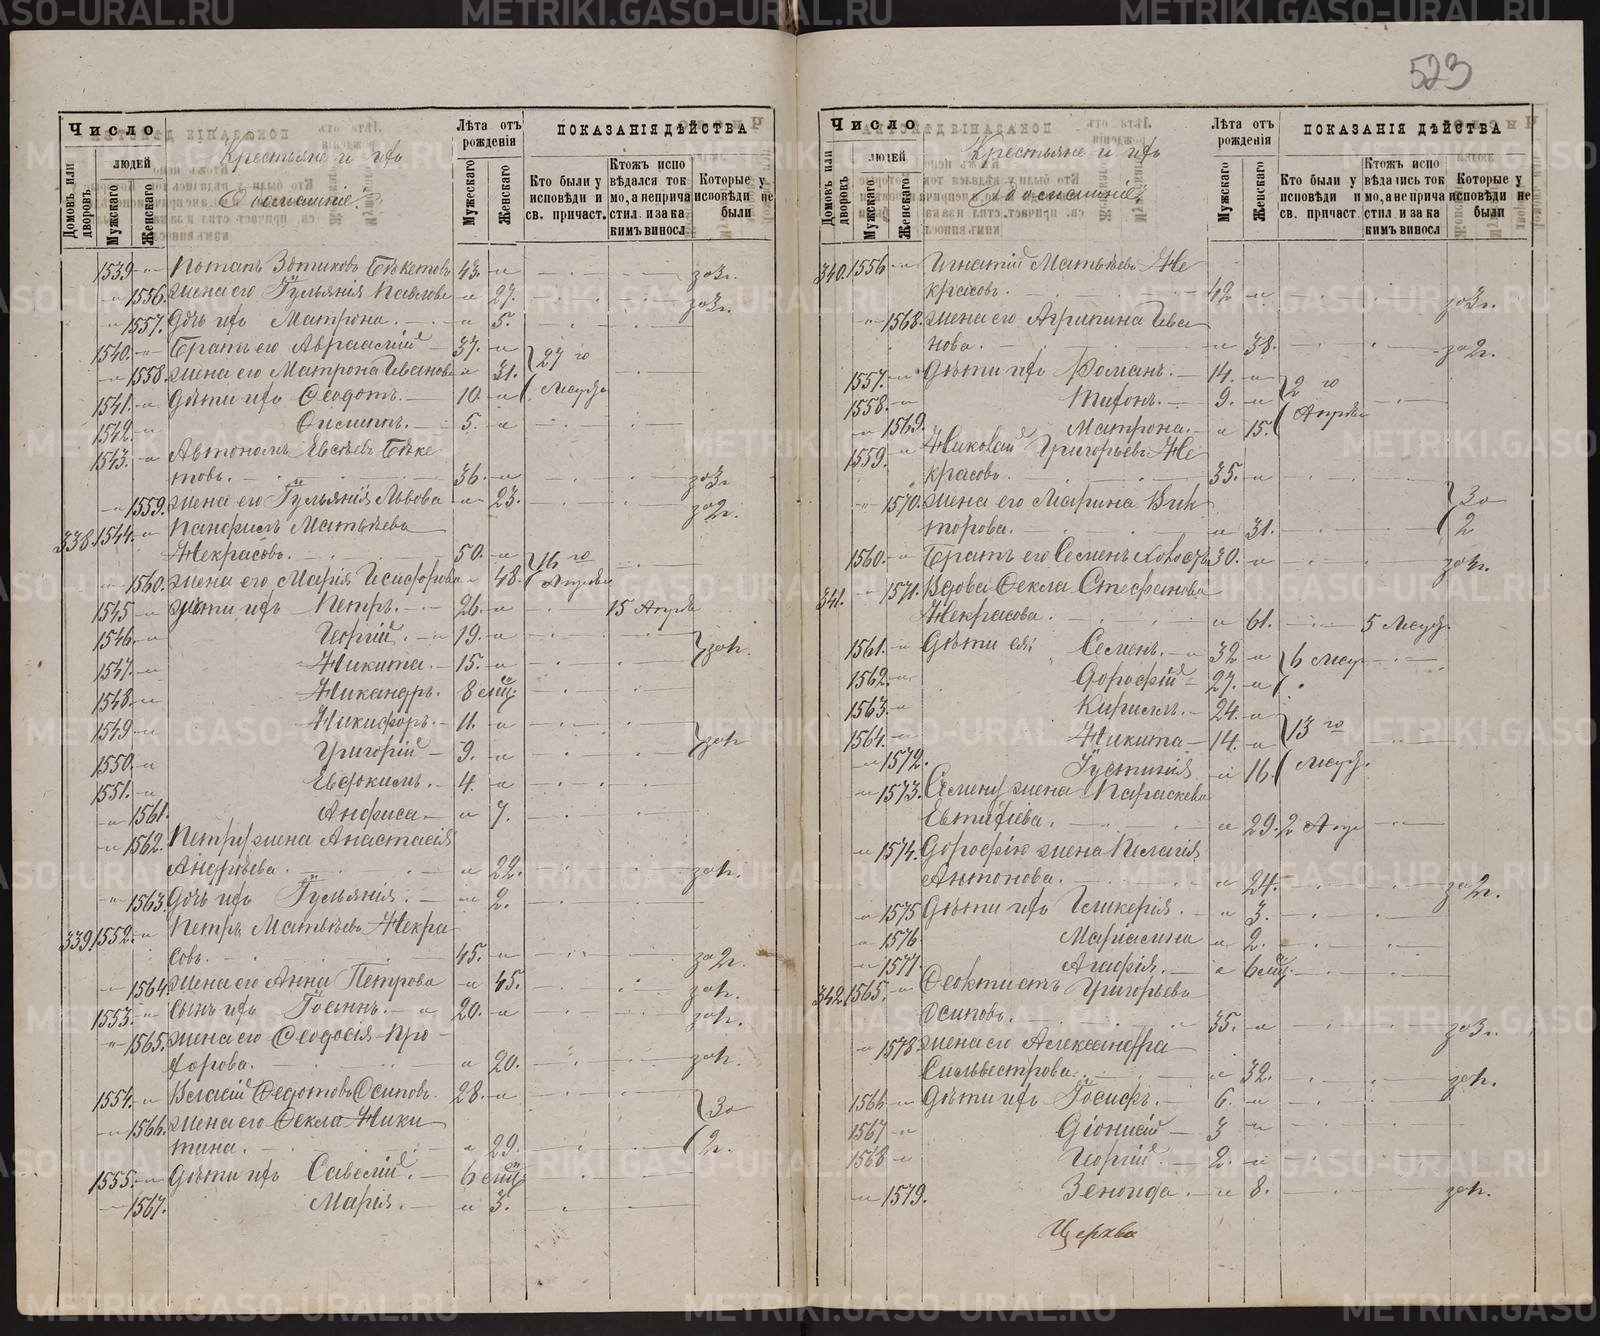 523
Число
Лѣта отъ рожденія
ПОКАЗАНІЯ ДѢЙСТВА
Домовъ или дворовъ
людей
Мужскаго
Женскаго
Крестьяне и ихъ
домашніе.
Мужескаго
Женскаго
Кто были у исповѣди и св. причаст.
Ктожъ испо вѣдался ток мо, а неприча стил. и за ка кимъ виносл.
Которые у исповѣди не были
1539 Потапъ Зотиковъ Бѣкетовъ 43. за 3 г.
1556. жена его Іульянія Павлова 27. за 3 г.
1557. дочь ихъ Матрона. 5.
1540. Братъ его Авраамій 37. 27 го
1558. жена его Матрона Иванова 31.
1541. Дѣти ихъ Ѳеодотъ. 10. Марта
1542. Онисимъ. 5.
1543. Автономъ Евсѣевъ Бѣке
товъ. 36. за 3 г.
1559. жена его Іульянія Львова 23. за 2 г.
338. 1544. Панфилъ Матвѣевъ
Некрасовъ. 50. 16 го
1560. жена его Марія Исифорова 48. Апрѣля
1545 дѣти ихъ Петръ. 26. 15 Апрѣ
1546 Георгій. 19.
1547. Никита. 15. за 1 г.
1548. Никандръ. 8
1549 Никифоръ. 11.
1550. Григорій 9. за 1 г.
1551. Евдокимъ. 4.
1561. Анфиса. 7.
1562. Петру жена Анастасія
Андрѣева. 22. за 1 г.
1563. дочь ихъ Іульянія. 2.
339. 1552. Петръ Матвѣевъ Некра
совъ. 45. за 2 г.
1564. жена его Анна Петрова 45. за 1 г.
1553. сынъ ихъ Іоаннъ. 20. за 1 г.
1565. жена его Ѳеодосія Про
хорова. 20. за 1 г.
1554. Власій Ѳедотовъ Осиповъ. 28. За
1566. жена его Ѳекла Ники
тина. 29. 2 г.
1555. Дѣти ихъ Савелій. 6
1567. Марья. 3.
Число
Лѣта отъ рожденія
ПОКАЗАНІЯ ДѢЙСТВА
Домовъ или дворовъ
людей
Мужскаго
Женскаго
Крестьяне и ихъ
домашніе.
Мужескаго
Женскаго
Кто были у исповѣди и св. причаст.
Ктожъ испо вѣдались ток мо, а не прича стил. и за ка кимъ виносл
Которые у исповѣди не были
340. 1556 Игнатій Матвѣевъ Не
красовъ. 42. за 3 г.
1568. жена его Агрипина Ива
нова. 38. за 2 г.
1557. Дѣти ихъ Романъ. 14. 2 го
1558. Тихонъ. 9. Апрѣля
1569. Матрона. 15.
1559. Николай Григорьевъ Не
красовъ. 35.
1570. жена его Марина Вик За
торова. 31. 2
1560. Братъ его Семенъ 30. за 1 г.
341. 1571. Вдова Ѳекла Стефанова
Некрасова. 61. 5 Марта
1561. Дѣти ея; Семенъ. 32 6 Мар
1562. Дорофей 27.
1563. Кирилъ. 24.
1564. Никита 14. 13 го
1572. Іустинія 16. Марта
1573. Семену жена Параскева
Евтихіева. 29. 2 Апр
1574. Дорофію жена Пелагія
Антонова. 24. за 2 г.
1575 Дѣти ихъ Гликерія. 3.
1576 Маріамна 2.
1577 Агафія. 6
342. 1565. Ѳеоктистъ Григорьевъ
Осиповъ. 35. за 3 г.
1578 жена его Александра
Сильвестрова. 32. за 1 г.
1566 Дѣти ихъ Іосифъ. 6.
1567 Діонисій 3
1568 Георгій. 2.
1579. Зеноида. 8. за 1 г.
Церква